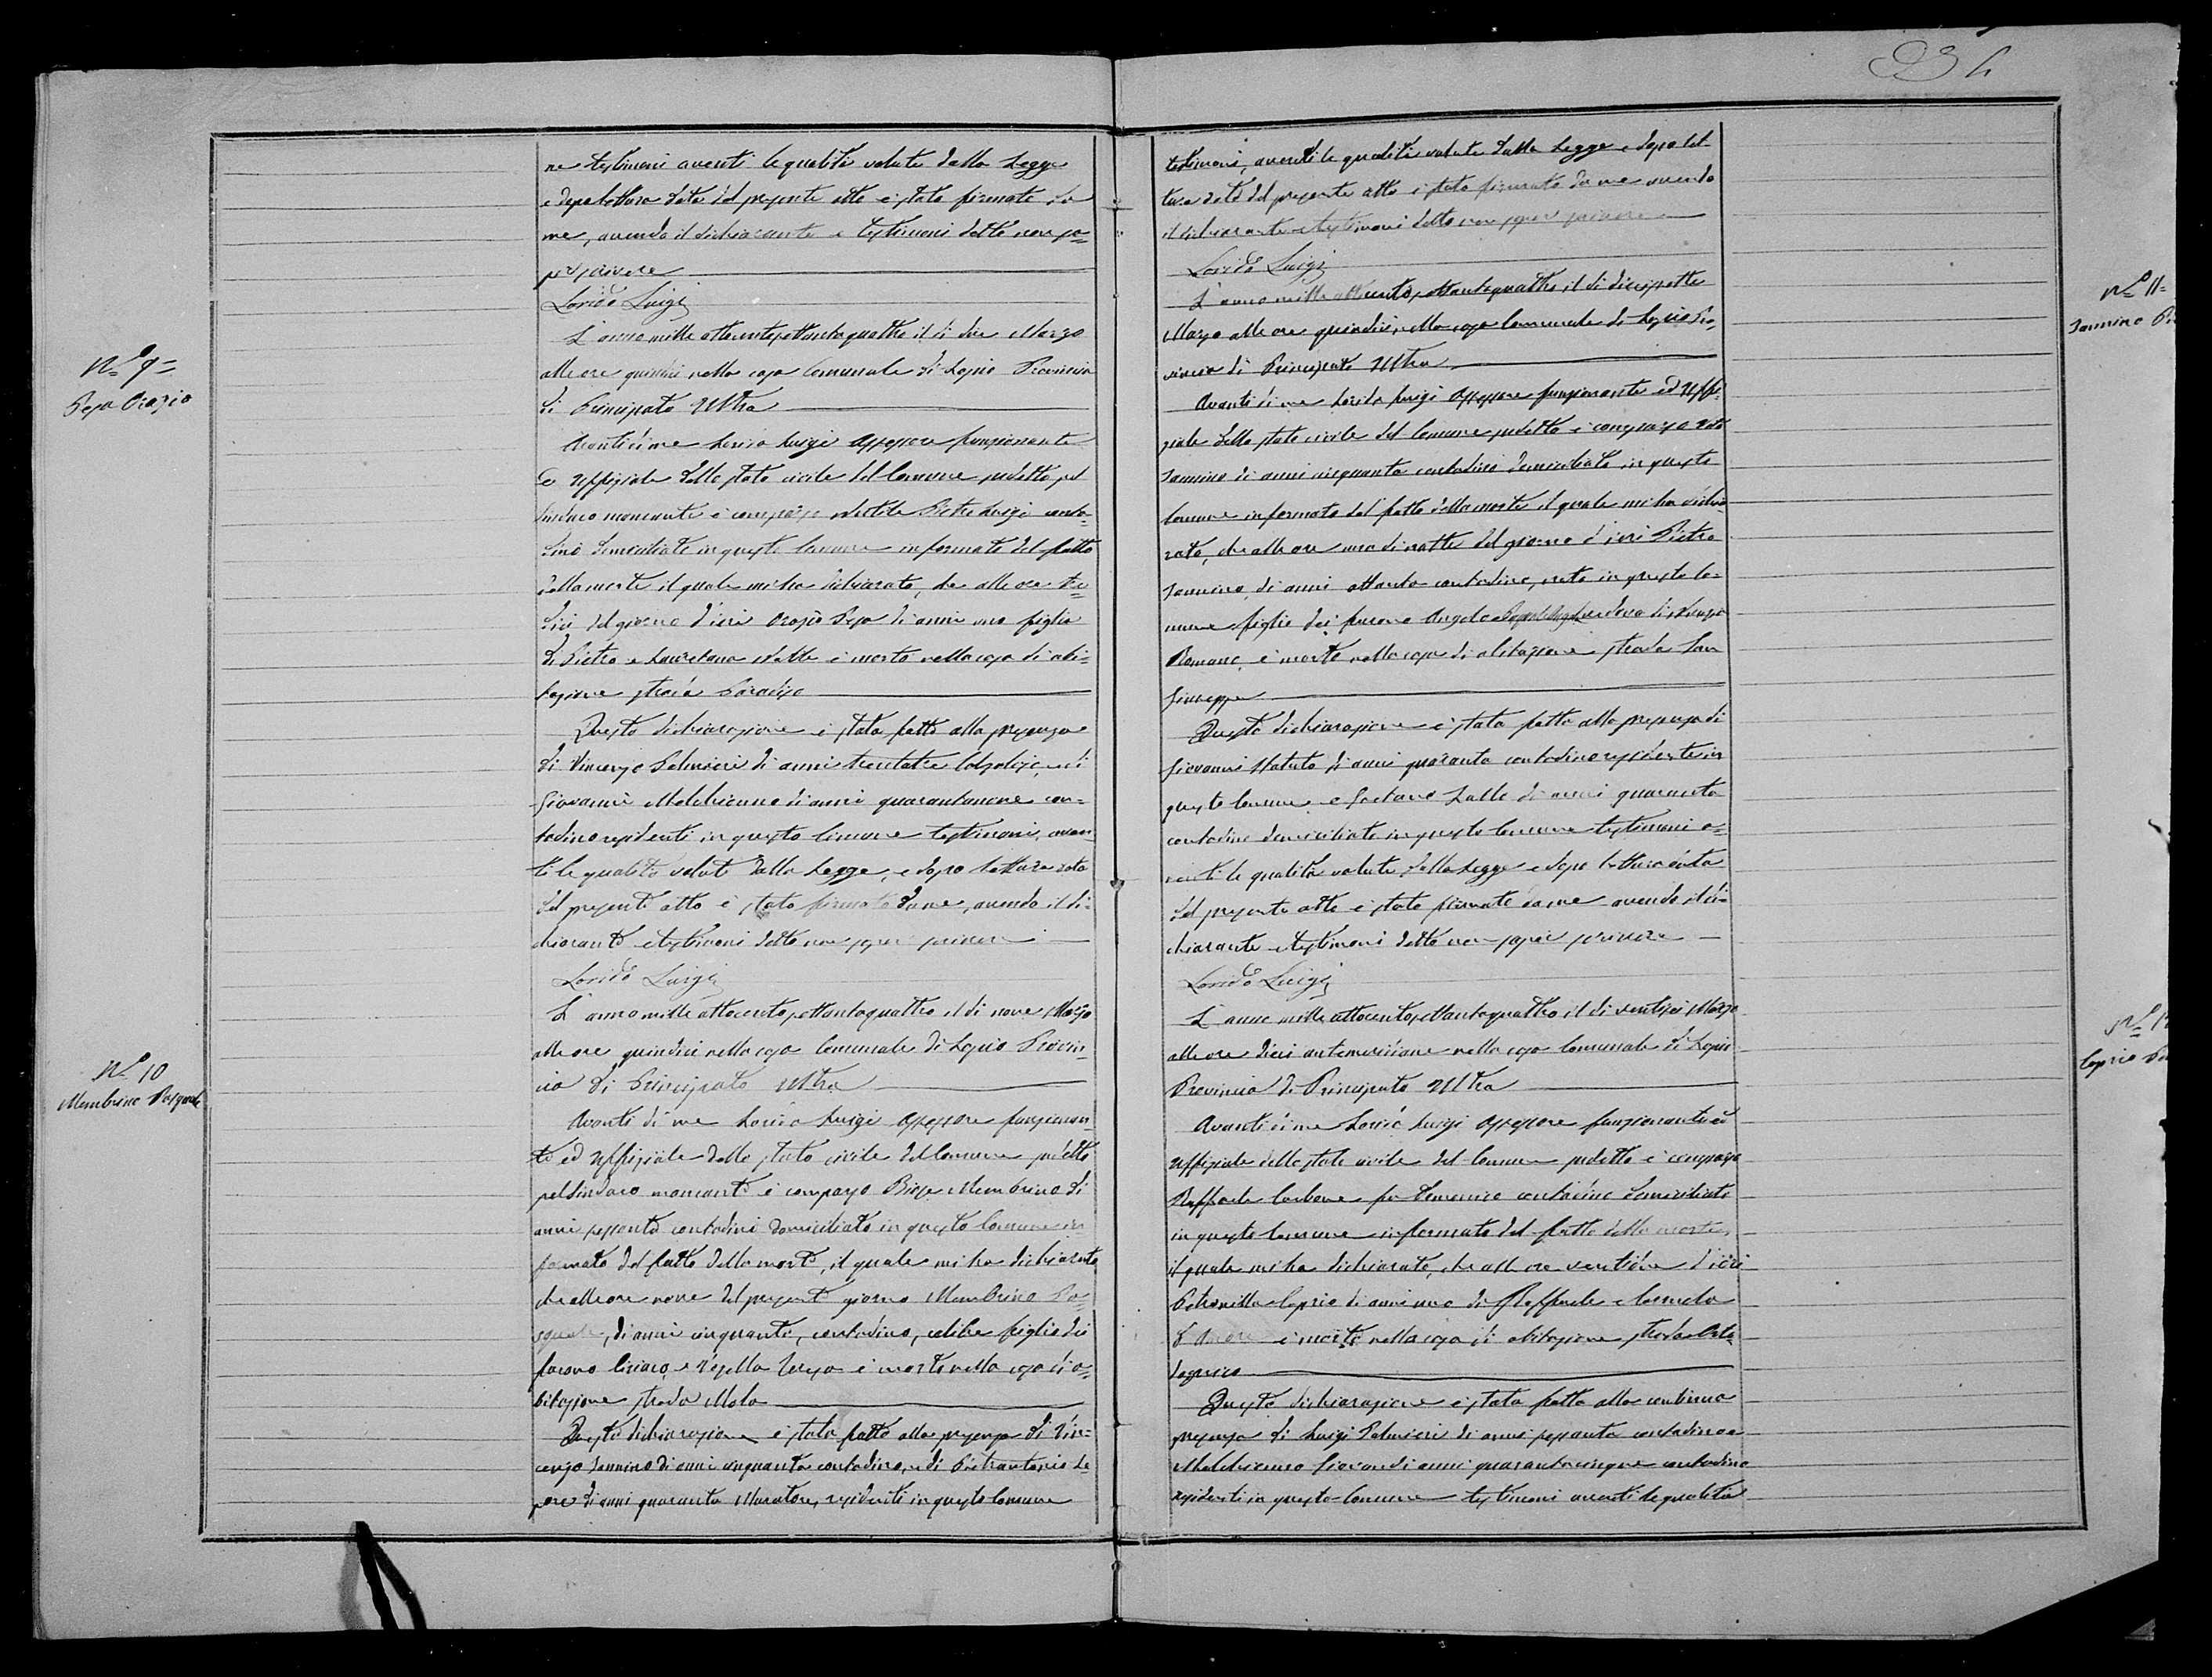 ne testimoni aventi le qualità volute dalla Legge
e dopo lettura data del presente atto è stato firmato da
me, avendo il dichiarante e testimoni detto non sa=
per scrivere
Lorido Luigi
N.º 9=
Pepa Orazio
L'anno mille ottocentosettantaquattro il dì due Marzo
alle ore quindici nella casa Comunale di Lapio Provincia
di Principato Ultra
Avanti di me Luigi Assessore funzionante
ed Uffiziale dello stato civile del Comune suddetto pel
Sindaco mancante è comparso Pietro Luigi conta=
dino domiciliato in questo Comune informato del fatto
della morte il quale mi ha dichiarato, che alle ore
dici del giorno d'ieri Orazio Pepa di anni uno figlio
di Pietro e Lauretana è morto nella casa di abi=
tazione strada Paradiso
Questa dichiarazione è stata fatta alla presenza
di Vincenzo Palmieri di anni trentatre Calzolajo, e di
Giovanni Melchionno di anni quarantanove con=
tadino residenti in questo Comune testimoni, aven=
ti le qualità volute dalla Legge, e dopo lettura data
del presente atto è stato firmato da me, avendo il di=
chiarante e testimoni detto non saper scrivere
Lorido Luigi
N.º 10
Membrino Pasquale
L'anno mille ottocentosettantaquattro il dì nove Marzo
alle ore quindici nella casa Comunale di Lapio Provin=
cia di Principato Ultra
Avanti di me Luigi Assessore funzionan=
te ed Uffiziale dello stato civile del Comune suddetto
pel Sindaco mancante è comparso Biase Membrino di
anni sessanta contadino domiciliato in questo Comune in=
formato del fatto della morte, il quale mi ha dichiarato
che alle ore nove del presente giorno Membrino Pa=
squale, di anni cinquanta, contadino, celibe figlio dei
furono Ciriaco e è morto nella casa di a=
bitazione strada Mola
Questa dichiarazione è stata fatta alla presenza di Vin=
cenzo Iannino di anni cinquanta contadino, e di Pietrantonio Le=
pore di anni quaranta Muratore, residenti in questo Comune
testimoni, aventi le qualità volute dalla Legge e dopo let=
tura data del presente atto è stato firmato da me avendo
il dichiarante e testimoni detto non saper scrivere
Lorido Luigi
N.º 11=
Iannino
L'anno mille ottocentosettantaquattro, il dì diecisette
Marzo alle ore quindici, nella casa Comunale di Lapio Pro=
vincia di Principato Ultra
Avanti di me Luigi Assessore funzionante ed Uffi=
ziale dello stato civile del Comune suddetto è comparso
Iannino di anni cinquanta contadino domiciliato in questo
Comune informato del fatto della morte il quale mi ha dichia=
rato, che alle ore una di notte del giorno d'ieri Pietro
Iannino, di anni ottanta contadino, nato in questo Co=
mune figlio dei furono Angelo
Romano, è morto nella casa di abitazione strada San
Giuseppe
Questa dichiarazione è stata fatta alla presenza di
Giovanni Statuto di anni quaranta contadino residente in
questo Comune e Gaetano Gallo di anni quaranta
contadino domiciliato in questo Comune testimoni a=
venti le qualità volute dalla Legge e dopo lettura data
del presente atto è stato firmato da me avendo il di=
chiarante e testimoni detto non saper scrivere
Lorido Luigi
Caprio
L'anno mille ottocentosettantaquattro il dì ventisei Marzo
alle ore dieci antimeridiane nella casa Comunale di Lapio
Provincia di Principato Ultra
Avanti di me Luigi Assessore funzionante ed
Uffiziale dello stato civile del Comune suddetto è comparso
Raffaele Carbone fu Domenico contadino domiciliato
in questo Comune informato del fatto della morte,
il quale mi ha dichiarato, che alle ore ventidue d'ieri
Petronilla Caprio di anni uno di Raffaele e Carmela
è morta nella casa di abitazione strada
Questa dichiarazione è stata fatta alla continua
presenza di Luigi Palmieri di anni sessanta contadino e
Melchionno Giovan di anni quarantacinque contadino
residenti in questo Comune testimoni aventi le qualità